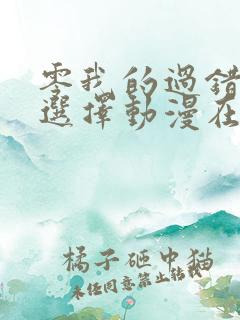 零我的過錯
選擇動漫在
橘子砸中猫
未经同意禁止转载